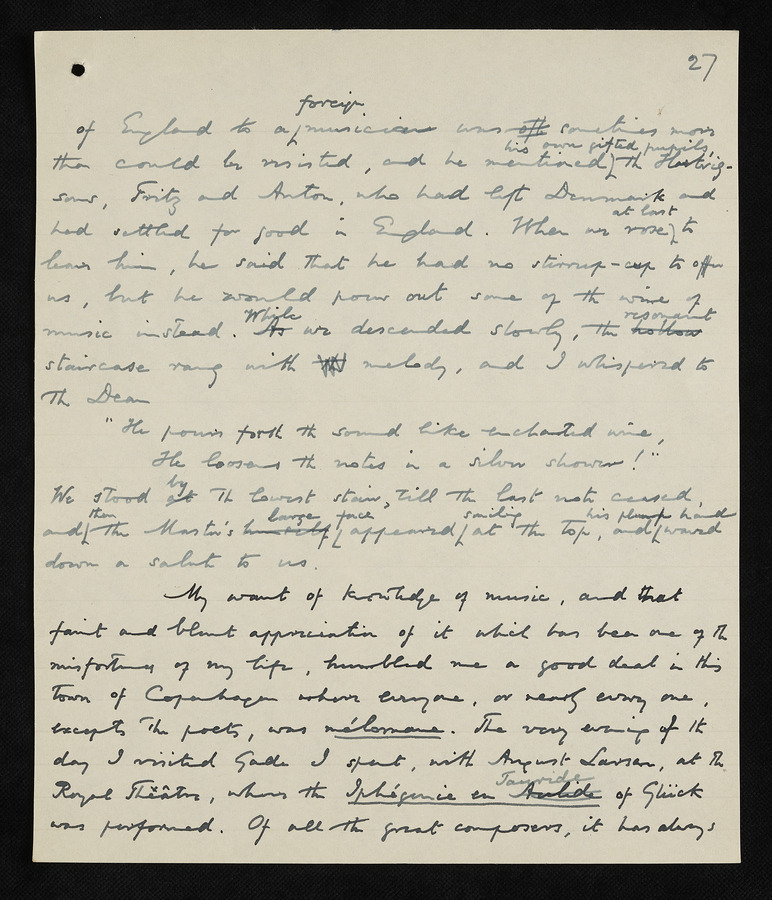 27
foreign
of England to a musician was oft sometimes more
his own gifted pupils,
than could be resisted, and he mentioned the Hartvig-
sons, Fritz and Anton, who had left Denmark and
at last
had settled for good in England. When we rose to
leave him, he said that he had no stirrup-cup to offer
us, but he would pour out some of the wine of
While resonant
music instead. As we descended slowly, the hollow
staircase rang with melody, and I whispered to
the Dean
"He pours forth the sound like enchanted wine,
He loosens the notes in a silver shower!"
by
We stood at the lowest stair, till the last note ceased,
then large face smiling his plump hand
and the Master's himself appeared at the top, and waved
down a salute to us.
My want of knowledge of music, and that
faint and blunt appreciation of it which has been one of the
misfortunes of my life, humbled me a good deal in this
town of Copenhagen where everyone, or nearly every one,
excepts the poets, was mélomane. The very evening of the
day I visited Gade I spent, with August Larsen, at the
Tauride
Royal Théâtre, where the Iphégenie en Aulide of Glück
was performed. Of all the great composers, it has always